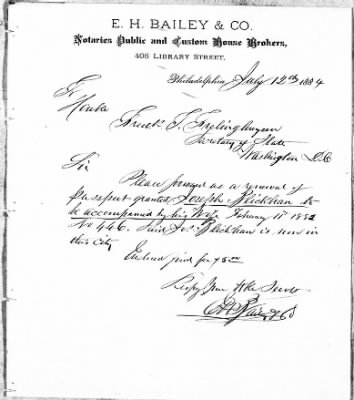 E. H. BAILEY & CO.
Notaries Public and Custom House Brokers,
406 LIBRARY STREET.
Philadelphia, July 12th 1884
To
Honble
Fredk T. Frelinghuysen
Secretary of State
Washington D.C
Sir
Please forward as a renewal of
Passport granted Joseph to
be accompanied by his Wife February 11 188
No 446. Said Jos. is now in
this City
Enclosed find for $5.00
Respy Your Obe Servts
E H Bailey & Co